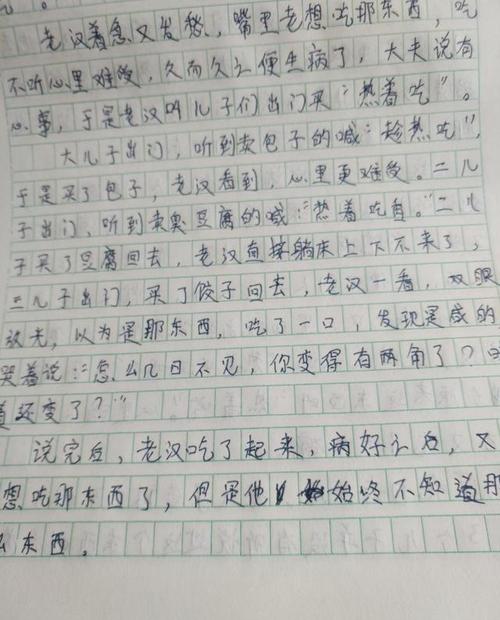 老汉着急又发愁，嘴里老想吃那东西，吃
不听心里难受，久而久之便生病了，大夫说有
心事，于是老汉叫儿子们出门买"热着吃"。
大儿子出门，听到卖包子的喊："趁热吃"，
于是买了包子，老汉看到，心里更难受。二儿
子出门、听到卖臭豆腐的喊："热着吃香。"二儿
子买了豆腐回去，老汉直接躺床上下不来了，
三儿子出门，买了饺子回去，老汉一看，双眼
放光，以为是那东西，吃了一口，发现是咸的
哭着说："怎么几日不见，你变得有两角了？
还变了？"
说完后，老汉吃了起来，病好之后，又
想吃那东西了，但是他始终不知道那
么东西。